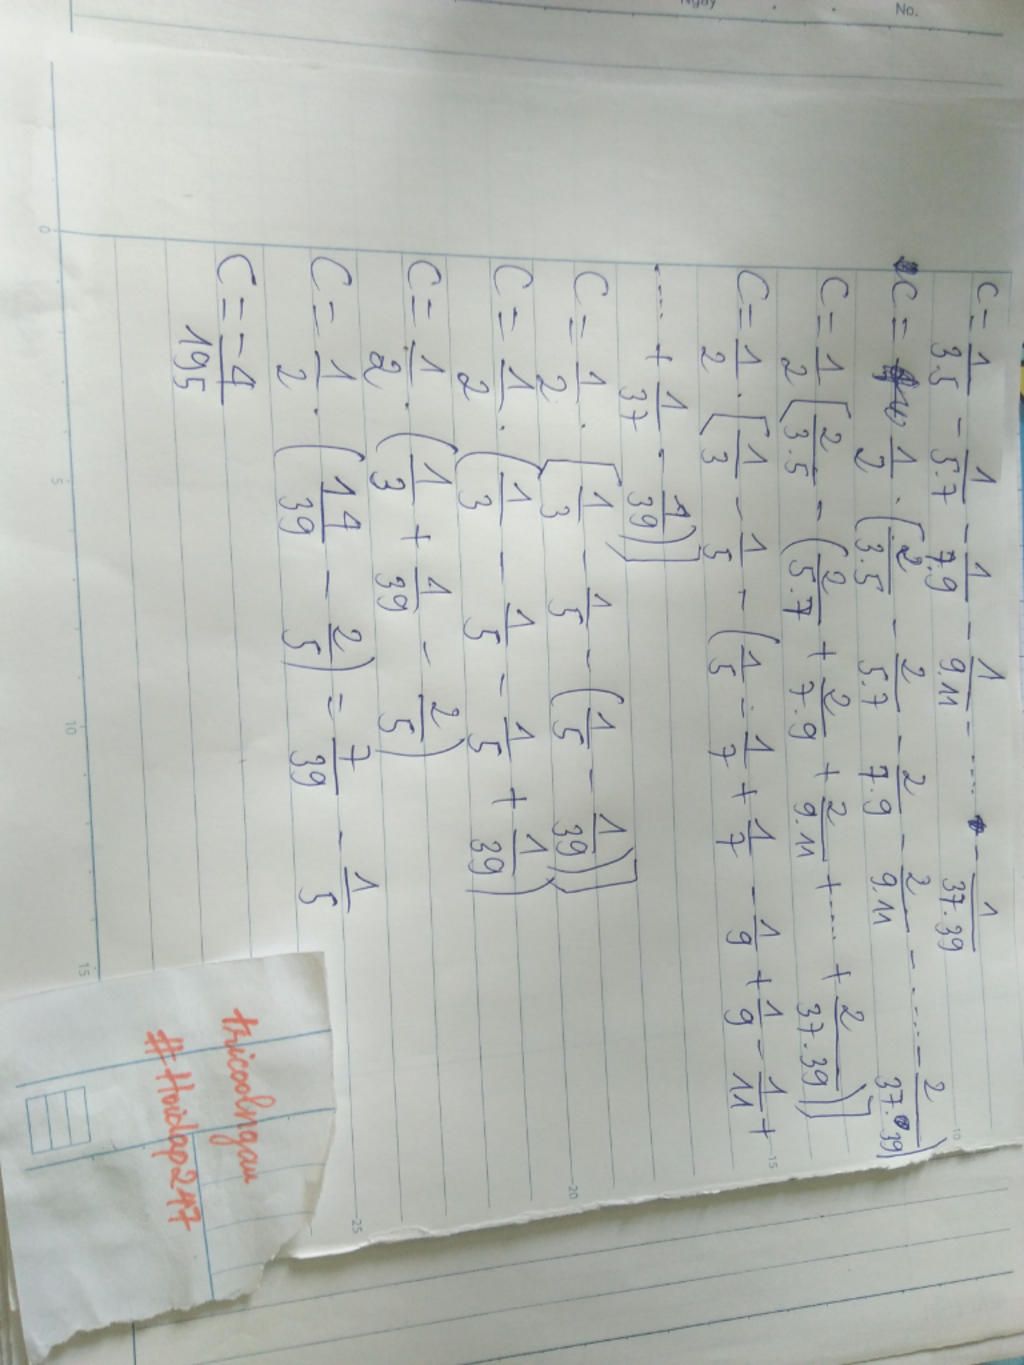 Ngày
No.
C = 1/3.5 - 1/5.7 - 1/7.9 - 1/9.11 - ..... - 1/37.39
C = 1/2 . (2/3.5 - 2/5.7 - 2/7.9 - 2/9.11 - ..... - 2/37.39)
C = 1/2 [2/3.5 - (2/5.7 + 2/7.9 + 2/9.11 + ..... + 2/37.39)]
C = 1/2 . [1/3 - 1/5 - (1/5 - 1/7 + 1/7 - 1/9 + 1/9 - 1/11 +
..... + 1/37 - 1/39)]
C = 1/2 . [1/3 - 1/5 - (1/5 - 1/39)]
C = 1/2 . (1/3 - 1/5 - 1/5 + 1/39)
C = 1/2 . (1/3 + 1/39 - 2/5)
C = 1/2 . (14/39 - 2/5) = 7/39 - 1/5
C = -4/195
0
5
10
15
10
15
20
25
#Hoidap247